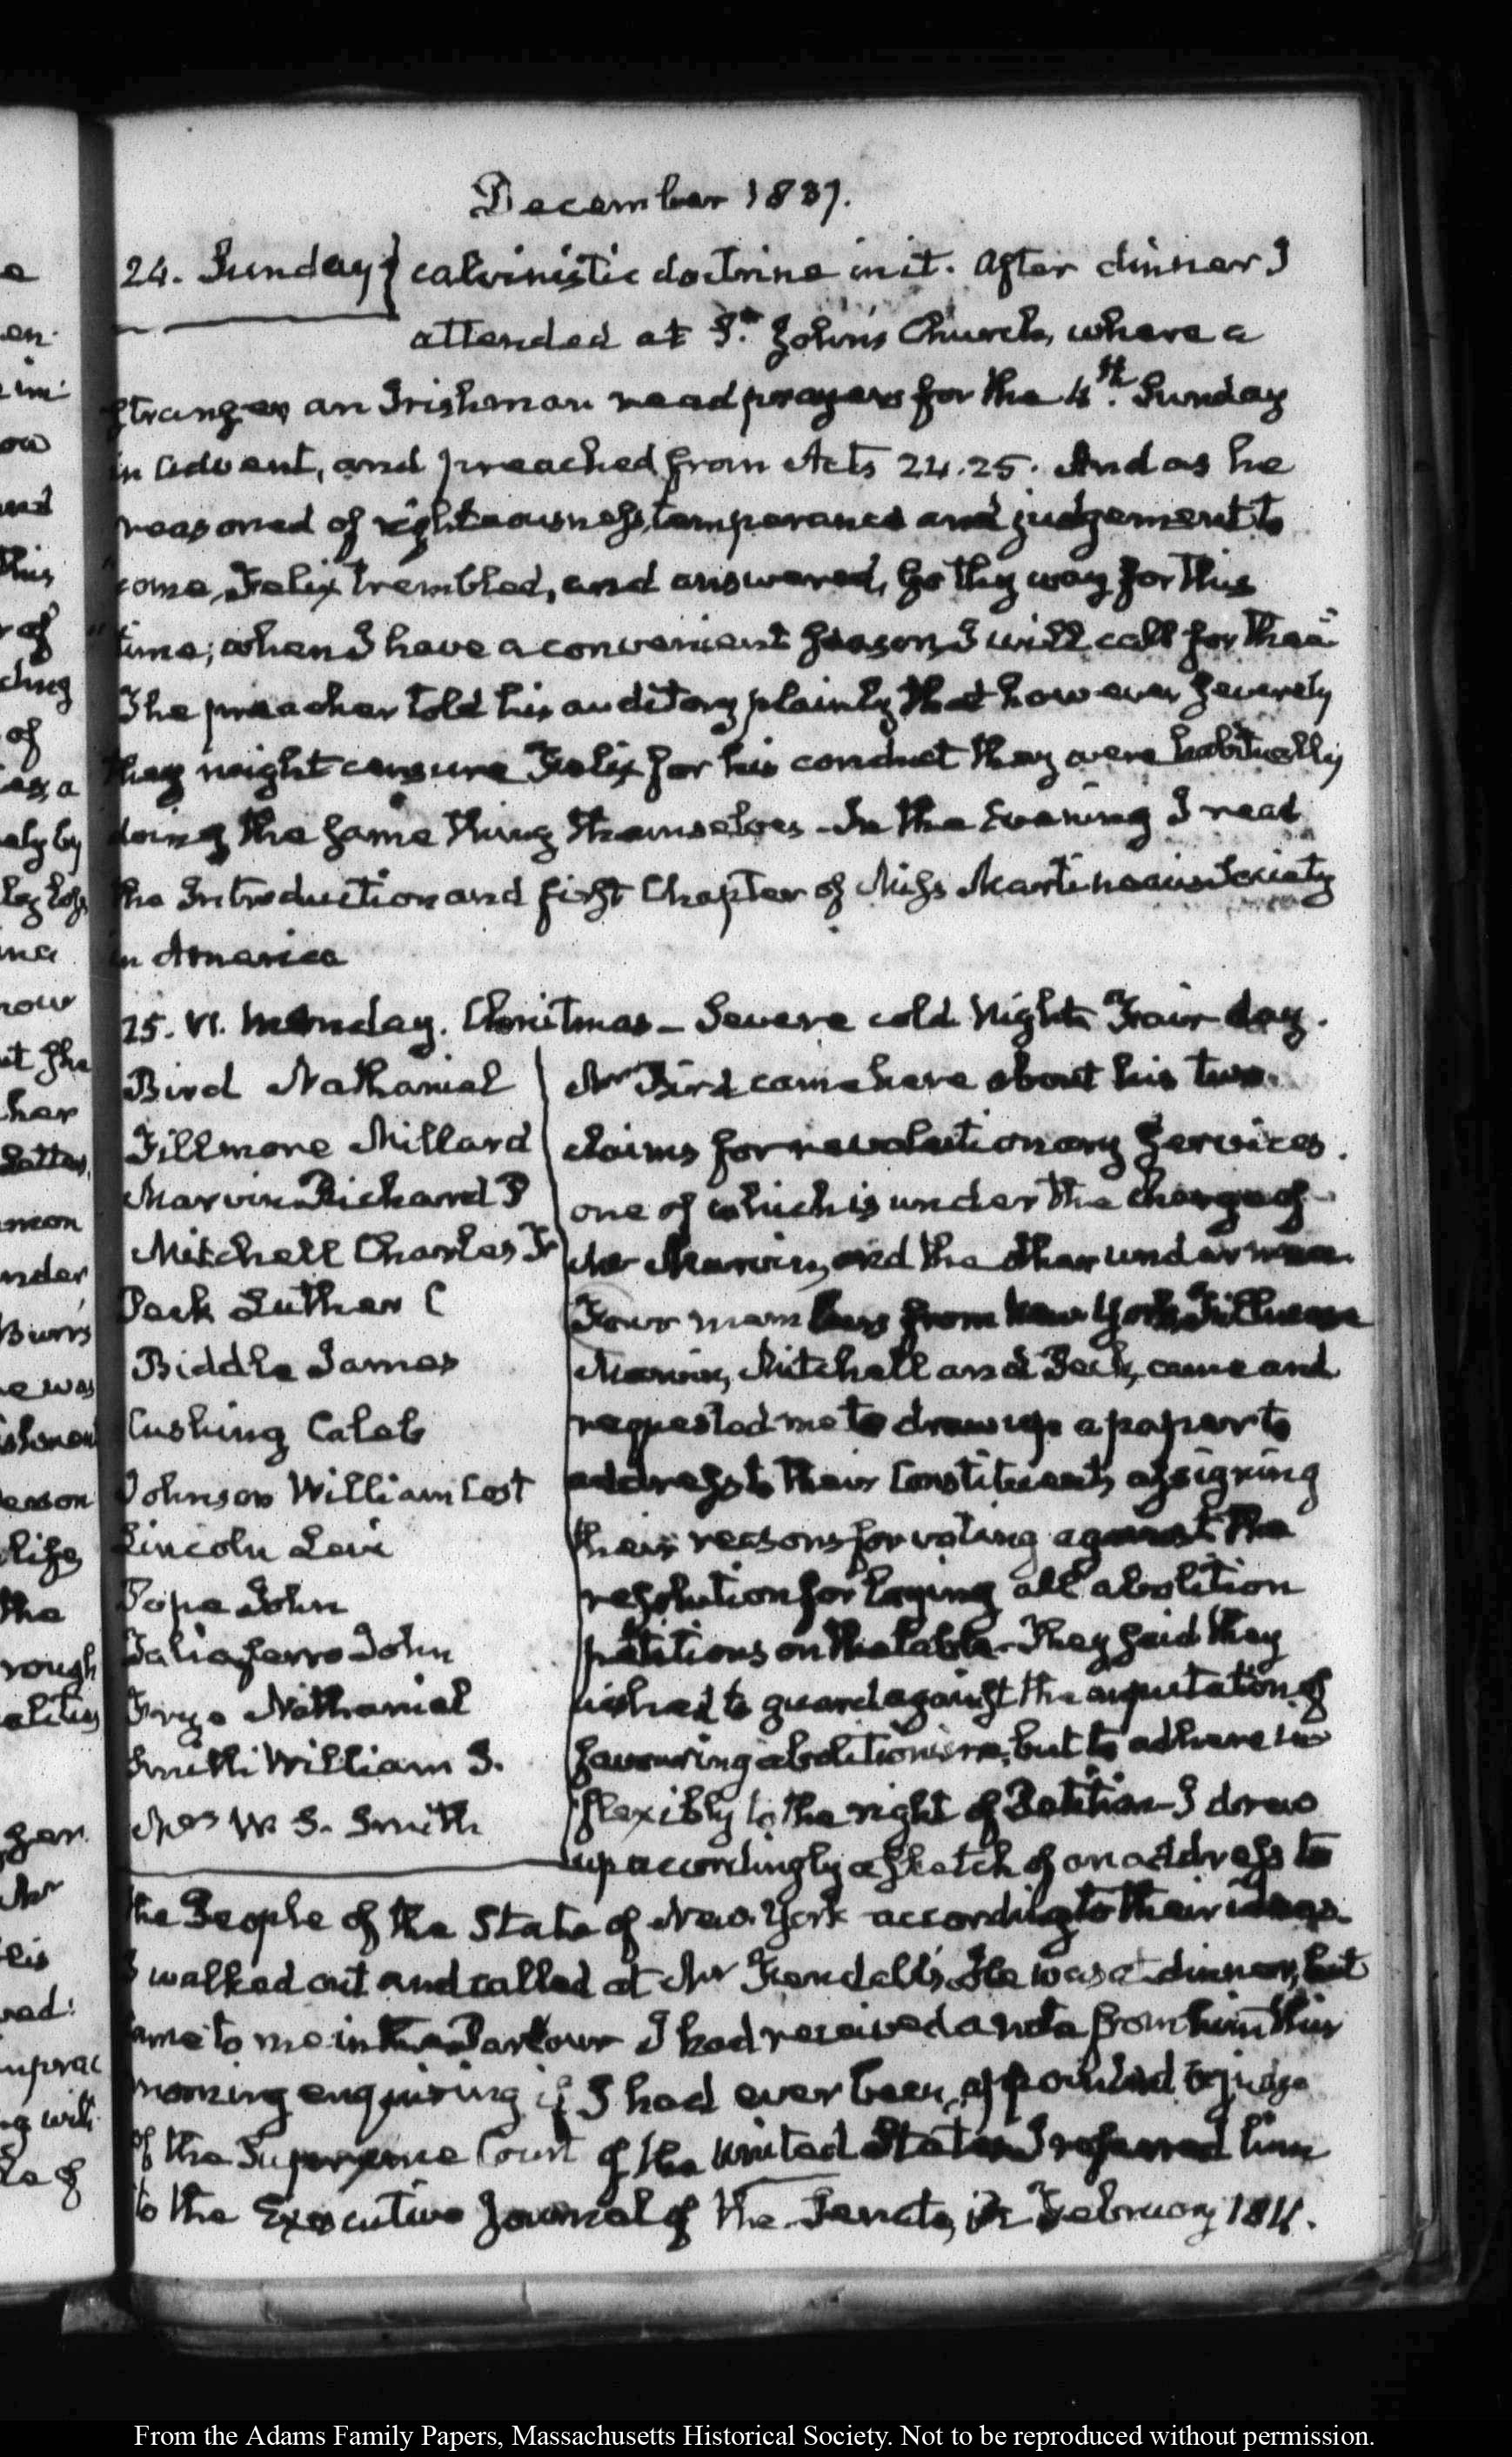 December 1837.
24. Sunday} calvinistic doctrine in it. After dinner I
attended at St. John's Church, where a
stranger an Irishman read prayers for the 4th. Sunday
in Advent, and preached from Acts 24.25. And as he
reasoned of righteousness, temperance and judgement to
come, Felix trembled, and answered, Go thy way for this
time; when I have a convenient season, I will call for thee"
The preacher told his auditory plainly that however severely
they might censure Felix for his conduct they were habitually
doing the same thing themselves - In the Evening I read
the Introduction and first Chapter of Miss Martineau's Society
in America
25. VI. Monday. Christmas - Severe cold Night. Fair day.
Bird Nathaniel
Fillmore Millard
Marvin Richard P
Mitchell Charles F
Peck Luther C
Biddle James
Cushing Caleb
Johnson William Cost
Lincoln Levi
Pope John
Taliaferro John
Frye Nathaniel
Smith William S.
Mrs W. S. Smith
Mr Bird came here about his two
claims for revolutionary services.
one of which is under the charge of
Mr Marvin, and the other under mine.
Four members from New York, Fillmore
Marvin, Mitchell and Peck, came and
requested me to draw up a paper to
address to their Constituents assigning
their reasons for voting against the
resolution for laying all abolition
petitions on the table - They said they
wished to guard against the imputation of
favouring abolitionism, but to adhere in
flexibly to the right of Petition - I drew
up accordingly a sketch of an address to
the People of the State of New York according to their ideas.
I walked out and called at Mr Fendall's. He was at dinner, but
came to me in the Parlour I had received a note from him this
morning enquiring if I had ever been appointed a judge
of the Supreme Court of the United States I referred him
to the Executive Journal of the Senate, in February 1811.
e
en.
im
ow
and
this
of
ching
of
as, a
ely by
na
now
at she
her
Letter,
mon
nder
Burr's
e was
erson
life
the
rough
alities
ger
Mr
his
vad:
g with
le of
From the Adams Family Papers, Massachusetts Historical Society. Not to be reproduced without permission.